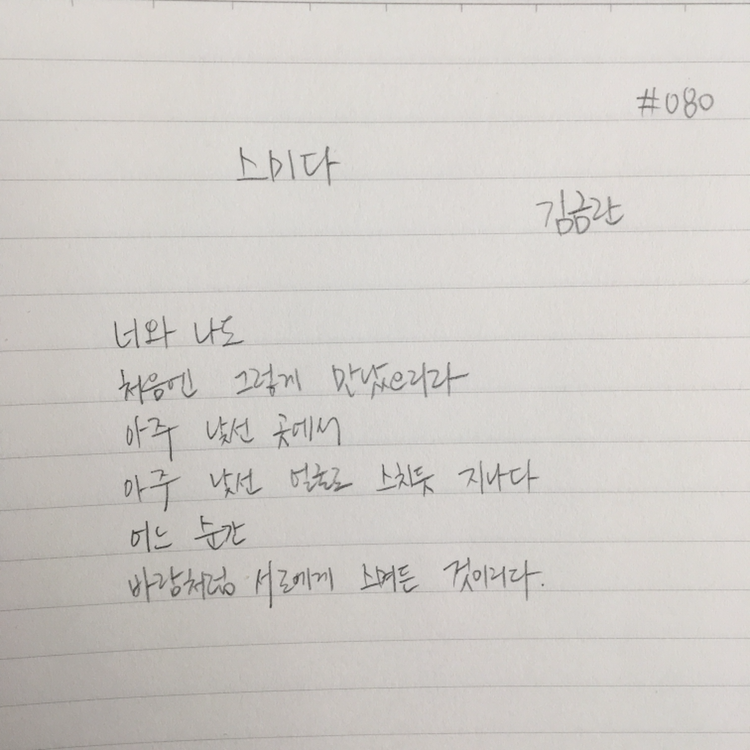 #080
스미다
김금란
너와 나도
처음엔 그렇게 만났으리라
아주 낯선 곳에서
아주 낯선 얼굴로 스치듯 지나다
어느 순간
바람처럼 서로에게 스며든 것이리다.